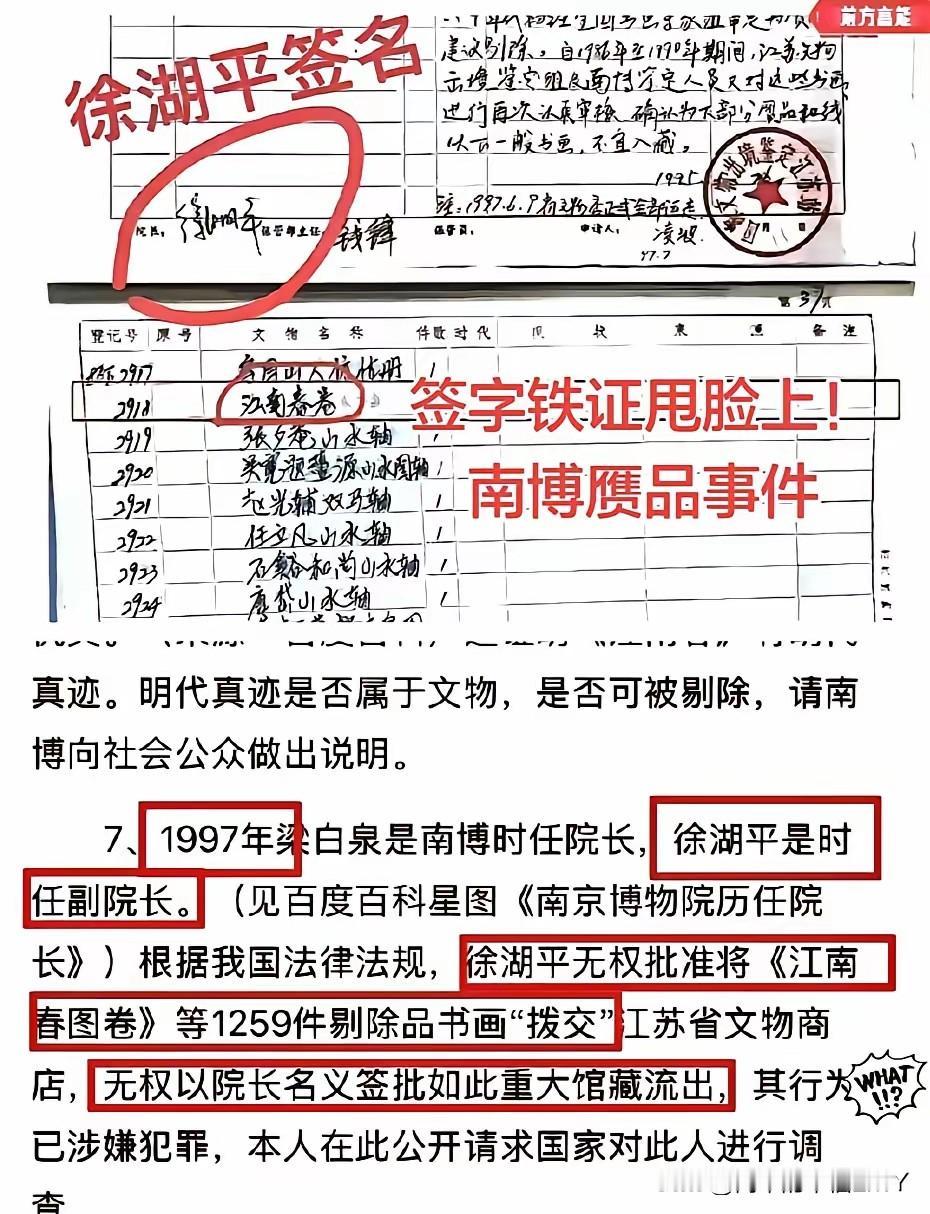 前方高能
徐湖平签名
建议剔除。自1986年至1990年期间,江苏文物
进行再次认真审核,确认为大部分赝品和线
以下一般书画,不宜入藏。
1995
注:1997.6.9
院长: 徐湖平 保管部主任: 钱锋 保管员: 申请人: 凌波
97.7
第37页
登记号 原号 文物名称 件数 时代 来源 备注
2917 1
2918 江南春卷
签字铁证甩脸上!
2919 张夕庵山水轴 1
2920 1
南博赝品事件
2921 赵光辅双马轴 1
2922 任立凡山水轴 1
2923 石溪和尚山水轴 1
2924 山水轴 1
真迹。明代真迹是否属于文物,是否可被剔除,请南
博向社会公众做出说明。
7、1997年梁白泉是南博时任院长,徐湖平是时
任副院长。(见百度百科星图《南京博物院历任院
长》)根据我国法律法规,徐湖平无权批准将《江南
春图卷》等1259件剔除品书画“拨交”江苏省文物商
店,无权以院长名义签批如此重大馆藏流出,其行为
WHAT
!!?
已涉嫌犯罪,本人在此公开请求国家对此人进行调
查